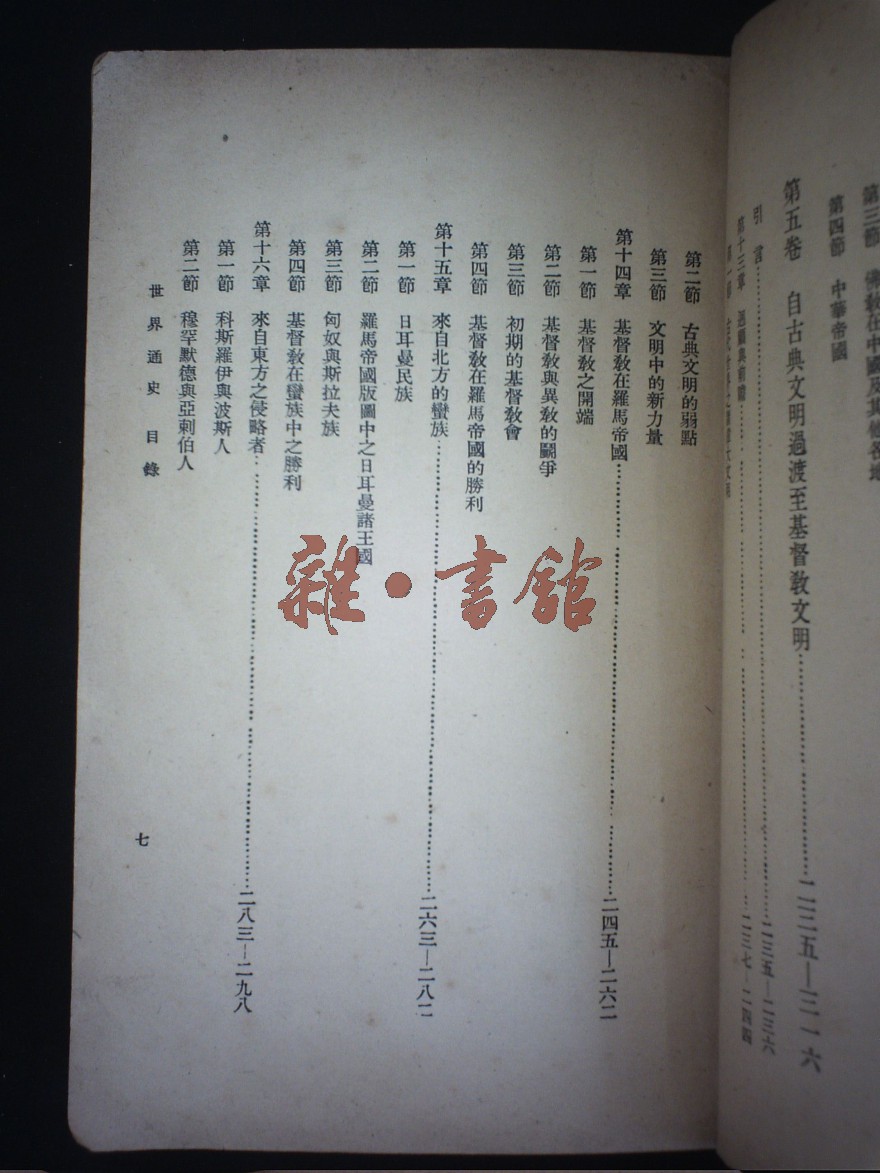 第三節 佛教在中國及其他各地
第四節 中華帝國
第五卷 自古典文明過渡至基督教文明 二三五—三一六
引言 二三五—二三六
第十三章 二三七—二四四
第一節
第二節 古典文明的弱點
第三節 文明中的新力量
第十四章 基督教在羅馬帝國 二四五—二六二
第一節 基督教之開端
第二節 基督教與異教的鬭爭
第三節 初期的基督教會
第四節 基督教在羅馬帝國的勝利
第十五章 來自北方的蠻族 二六三—二八二
第一節 日耳曼民族
第二節 羅馬帝國版圖中之日耳曼諸王國
第三節 匈奴與斯拉夫族
第四節 基督教在蠻族中之勝利
第十六章 來自東方之侵略者 二八三—二九八
第一節 科斯羅伊與波斯人
第二節 穆罕默德與亞剌伯人
世界通史 目錄
七
雜·書館